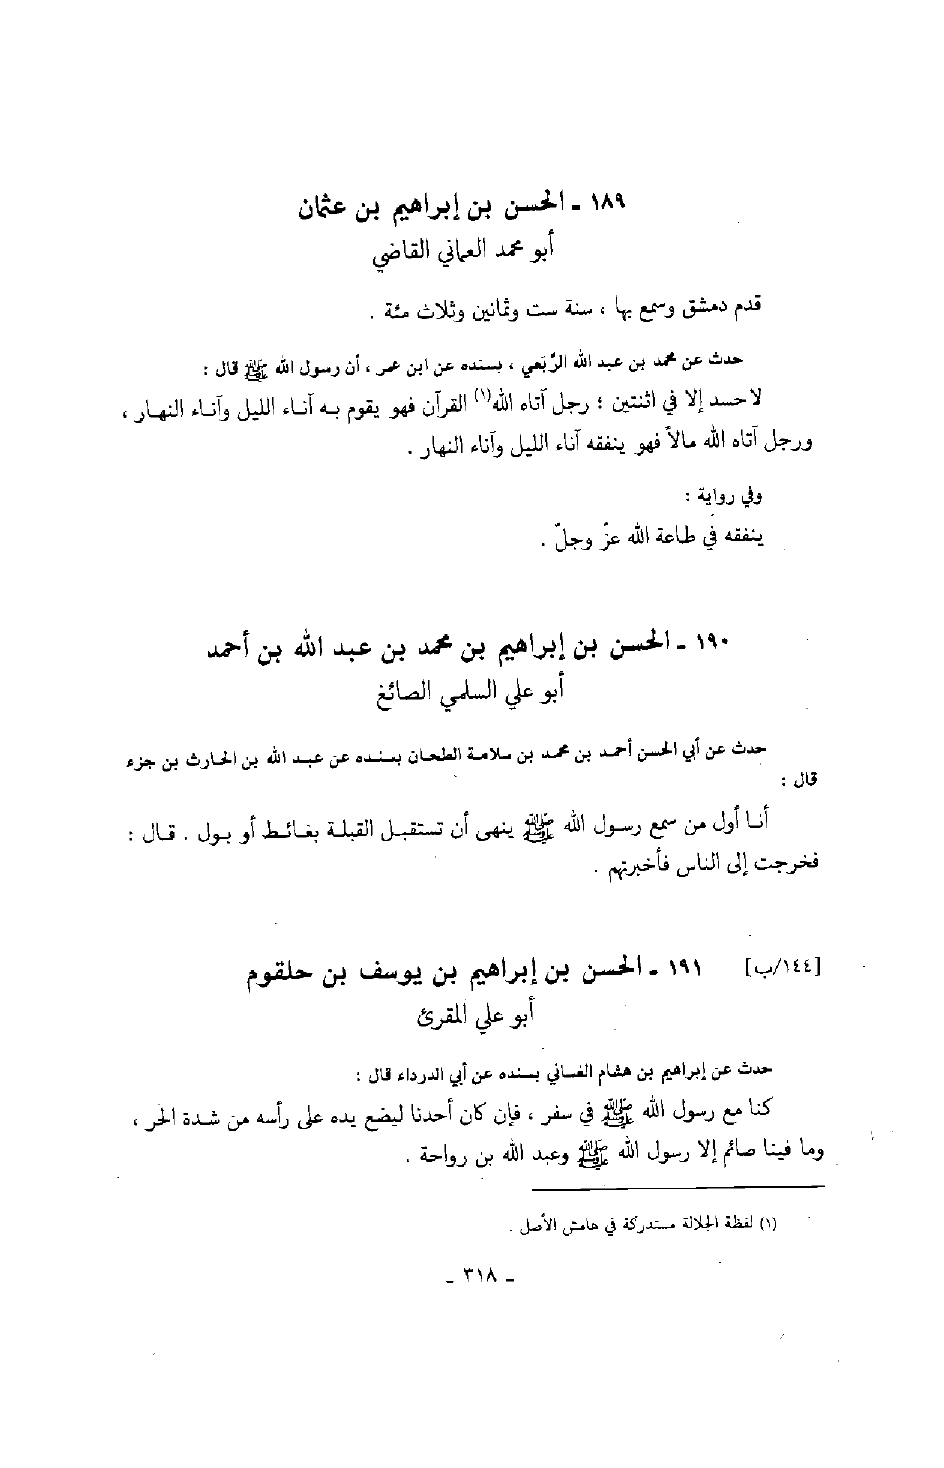 ١٨٩ ـ الحسن بن إبراهيم بن عثمان
أبو محمد العماني القاضي
قدم دمشق وسمع بها ، سنة ست وثمانين وثلاث مئة .
حدث عن محمد بن عبد الله الرَّبَعي ، بسنده عن ابن عمر ، أن رسول الله ﷺ قال :
لا حسد إلا في اثنتين ؛ رجل آتاه الله(١) القرآن فهو يقوم به آناء الليل وآناء النهار ،
ورجل آتاه الله مالاً فهو ينفقه آناء الليل وآناء النهار .
وفي رواية :
ينفقه في طاعة الله عزّ وجلّ .
١٩٠ ـ الحسن بن إبراهيم بن محمد بن عبد الله بن أحمد
أبو علي السلمي الصائغ
حدث عن أبي الحسن أحمد بن محمد بن سلامة الطحان بسنده عن عبد الله بن الحارث بن جزء
قال :
أنا أول من سمع رسول الله ﷺ ينهى أن تستقبل القبلة بغائط أو بول . قال :
فخرجت إلى الناس فأخبرتهم .
[١٤٤/ب] ١٩١ ـ الحسن بن إبراهيم بن يوسف بن حلقوم
أبو علي المقرئ
حدث عن إبراهيم بن هشام الغساني بسنده عن أبي الدرداء قال :
كنا مع رسول الله ﷺ في سفر ، فإن كان أحدنا ليضع يده على رأسه من شدة الحر ،
وما فينا صائم إلا رسول الله ﷺ وعبد الله بن رواحة .
(١) لفظة الجلالة مستدركة في هامش الأصل .
ـ ٣١٨ ـ